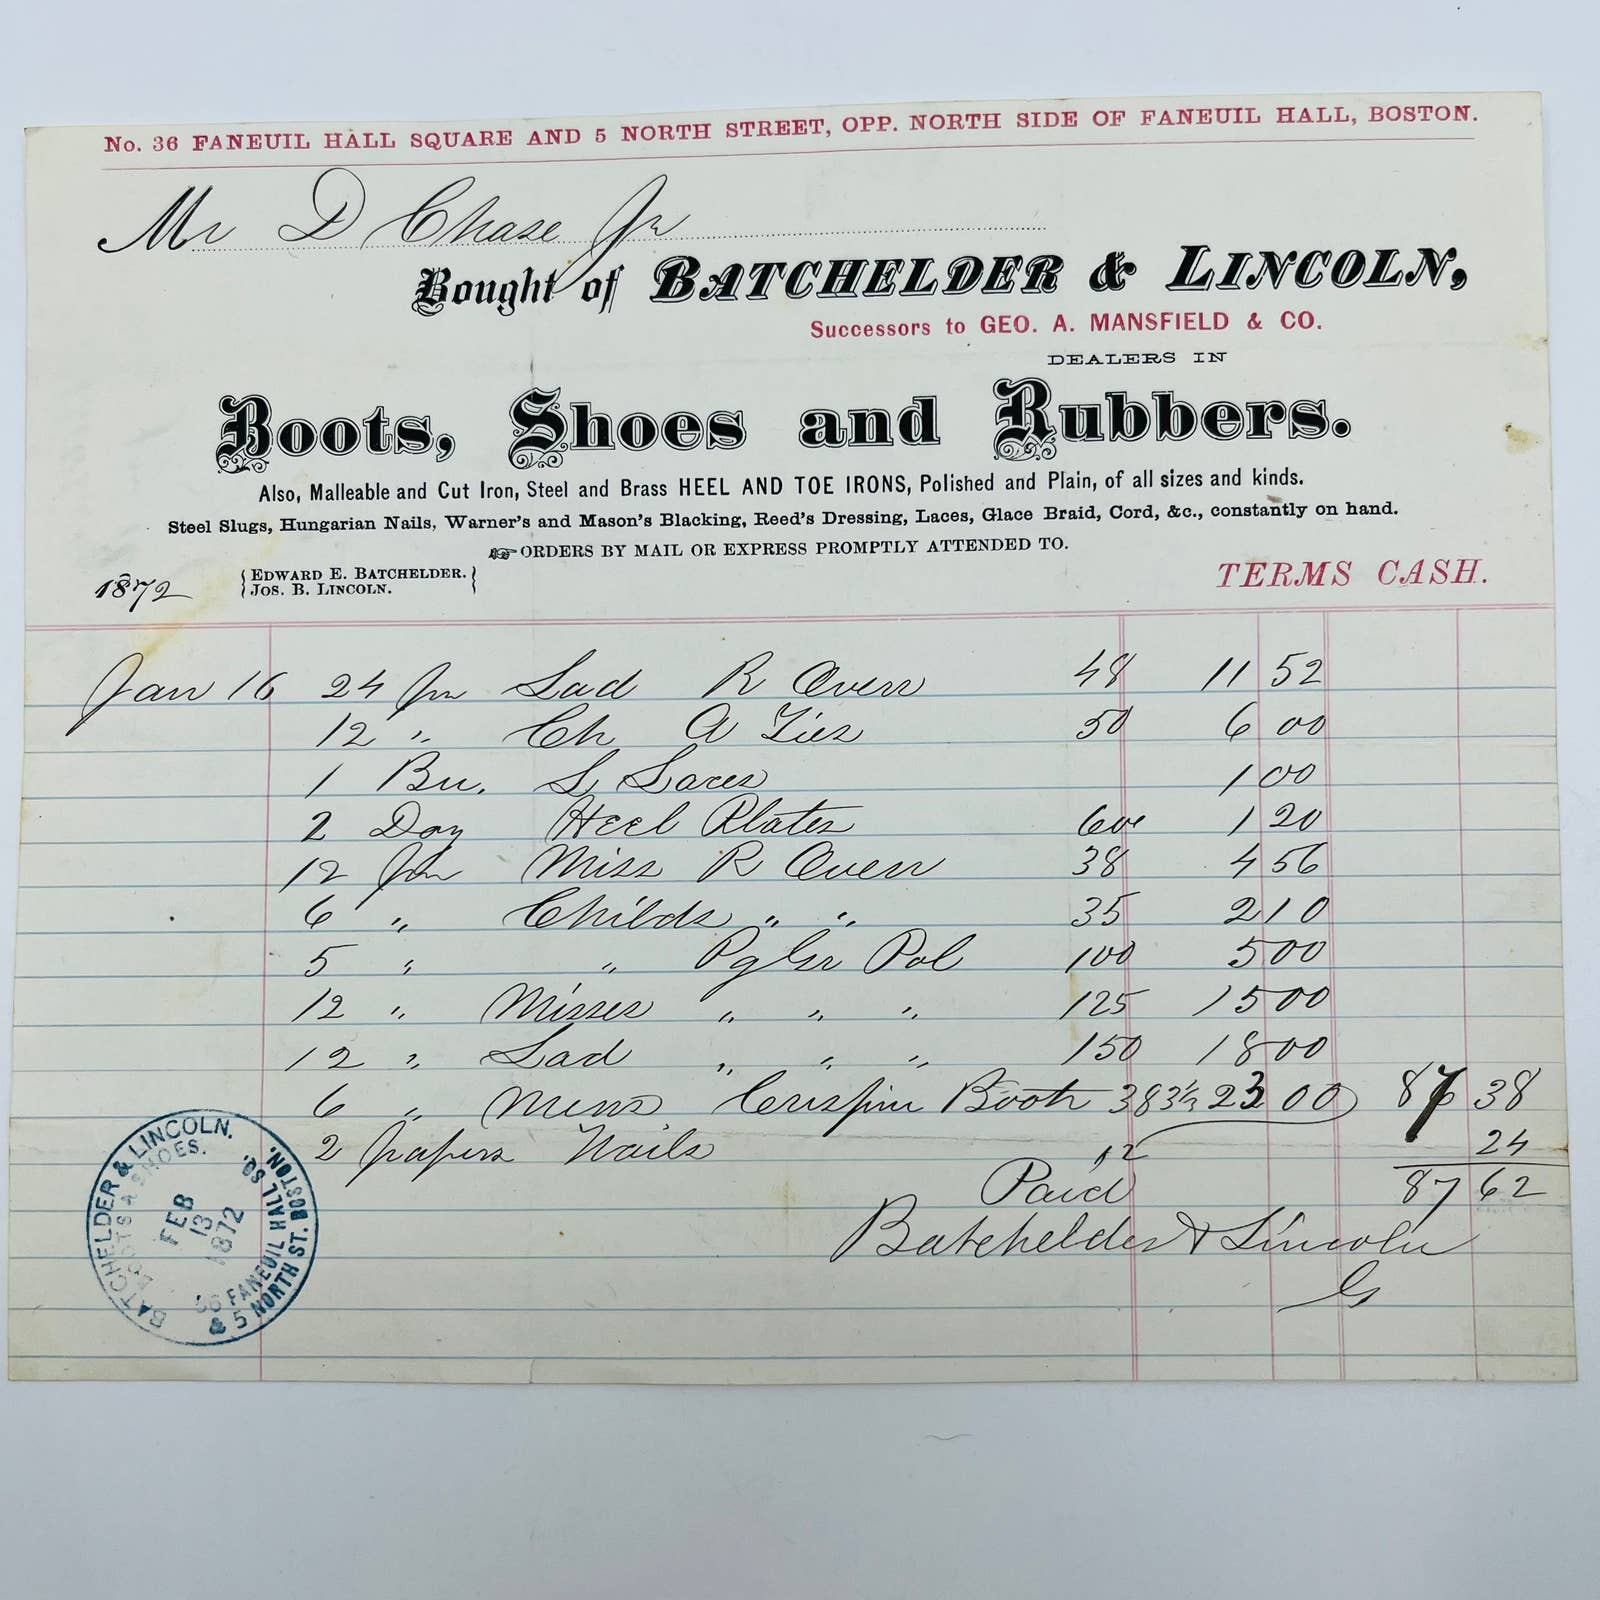 No. 36 FANEUIL HALL SQUARE AND 5 NORTH STREET, OPP. NORTH SIDE OF FANEUIL HALL, BOSTON.
Mr D Chase Jr
Bought of BATCHELDER & LINCOLN,
Successors to GEO. A. MANSFIELD & CO.
DEALERS IN
Boots, Shoes and Rubbers.
Also, Malleable and Cut Iron, Steel and Brass HEEL AND TOE IRONS, Polished and Plain, of all sizes and kinds.
Steel Slugs, Hungarian Nails, Warner's and Mason's Blacking, Reed's Dressing, Laces, Glace Braid, Cord, &c., constantly on hand.
ORDERS BY MAIL OR EXPRESS PROMPTLY ATTENDED TO.
1872 {EDWARD E. BATCHELDER. JOS. B. LINCOLN.} TERMS CASH.
Jan 16 24 Pr Lad R Overs 48 11 52
12 " Ch A Ties 50 6 00
1 Bu. L Laces 1 00
2 Doz Heel Plates 60c 1 20
12 Pr Miss R Overs 38 4 56
6 " Childs " " 35 2 10
5 " " Pol 100 5 00
12 " Misses " " " 125 15 00
12 " Lad " " " 150 18 00
6 " Mens Crispin Boots 383⅓ 23 00 87 38
2 papers Nails 12 24
Paid 87 62
Batchelder & Lincoln
G
BATCHELDER & LINCOLN.
BOOTS & SHOES.
FEB
13
1872
36 FANEUIL HALL SQ.
& 5 NORTH ST. BOSTON.